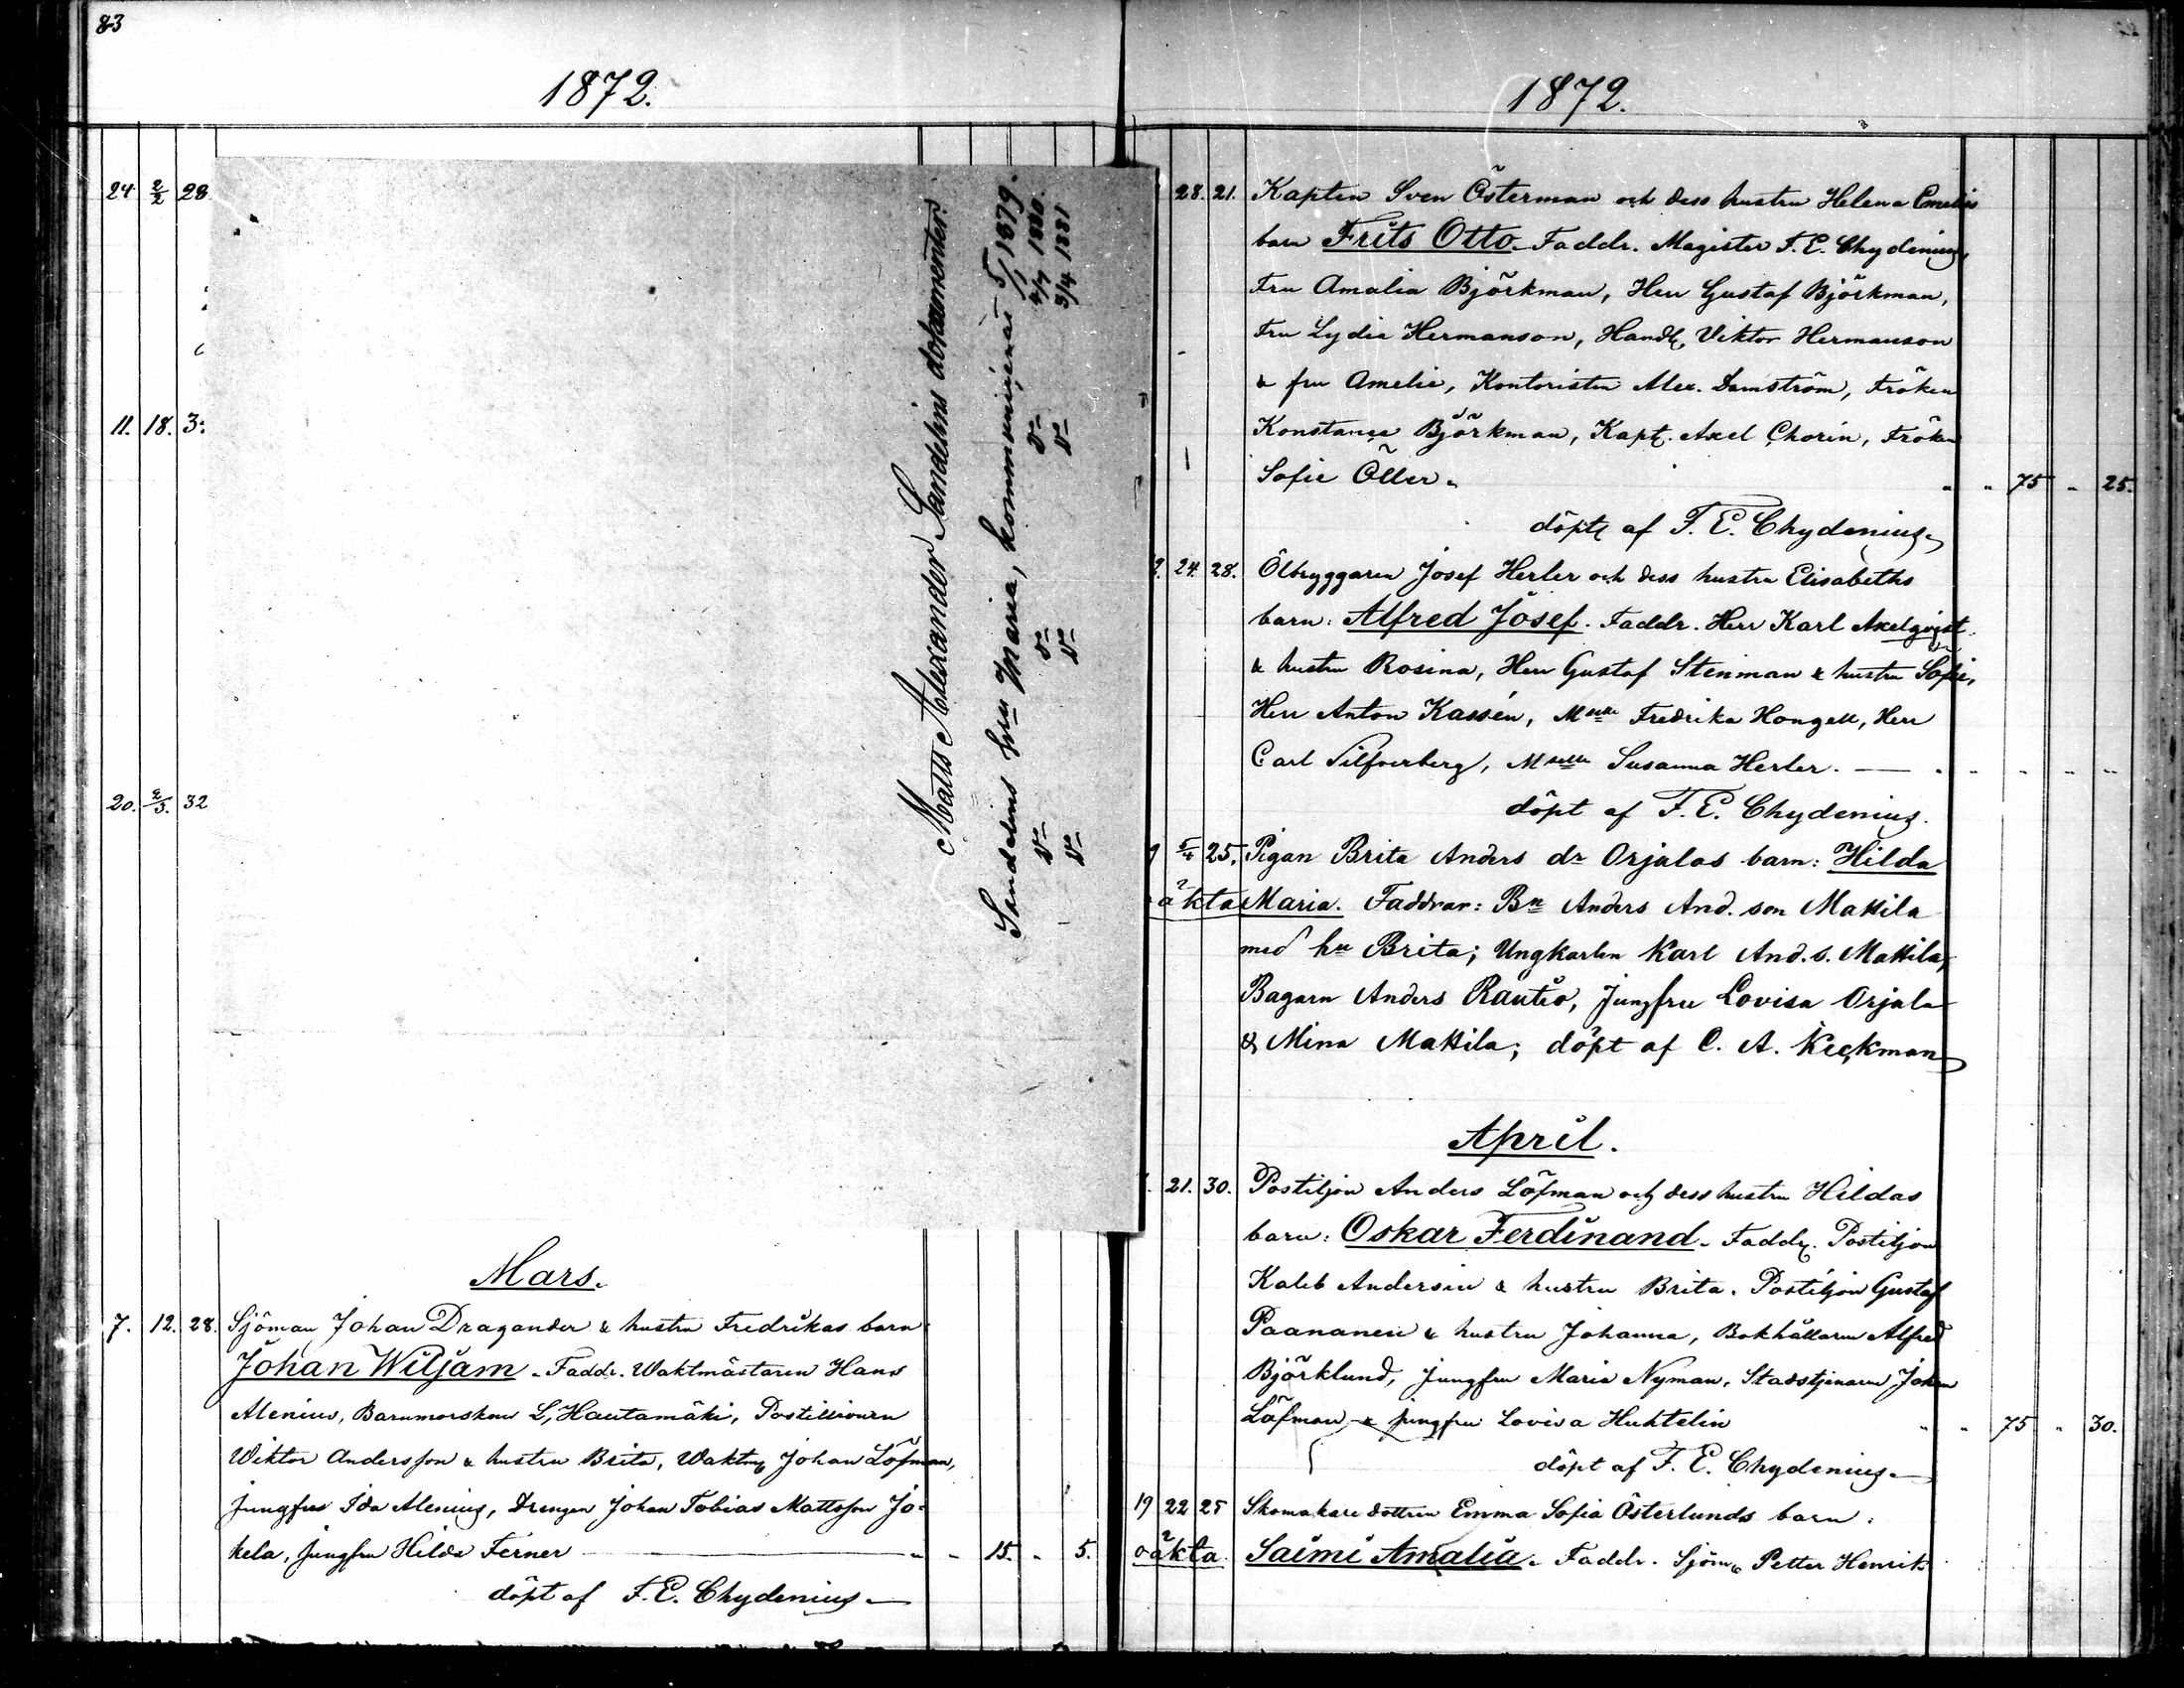 83
1872.
24 2/2 28
11. 18. 3
20. 2/3. 32
Matts Alexander Sandelins dokumenter.
Sandelins hru Maria, kommunicenat 5/1 1879.
Do Do Do 4/7 1880.
Do Do Do 3/4 1881
Mars.
7. 12. 28. Sjöman Johan Dragander & hustru Fredrikas barn
Johan Wiljam. Faddr. Waktmästaren Hans
Alenius, Barnmorskan L, Hautamäki, Postillionen
Wiktor Andersson & hustru Brita, Waktm Johan Löfman,
jungfru Ida Alenius, Drengen Johan Tobias Mattsson Jo-
kela, jungfru Hilda Ferner — " " 15. " 5.
döpt af F. E. Chydenius
1872.
28. 21. Kapten Sven Österman och dess hustru Helena Emelies
barn Frits Otto. Faddr. Magister F. E. Chydenius,
Fru Amalia Björkman, Herr Gustaf Björkman,
Fru Lydia Hermanson, Handl Viktor Hermanson
& fru Amelie, Kontoristen Alex. Damström, Fröken
Konstance Björkman, Kapt. Axel Chorin, Fröken
Sofie Öller. " " 75 " 25.
döpt af F. E. Chydenius
2. 24. 28. Ölbryggaren Josef Herler och dess hustru Elisabeths
barn: Alfred Josef. Faddr. Herr Karl Axelqvist
& hustru Rosina, Herr Gustaf Stenman & hustru Sofie,
Herr Anton Kassén, Mselle Fredrika Hongell, Herr
Carl Silfverberg, Mselle Susanna Herler. —
döpt af F. E. Chydenius.
5/4 25. Pigan Brita Anders dr Orjalas barn: Hilda
oäkta Maria. Faddrar: Bn Anders And. son Mattila
med hu Brita; Ungkarlen Karl And. s. Mattila,
Bagarn Anders Rautio, Jungfru Lovisa Orjala
& Mina Mattila; döpt af C. A. Keckman
April.
21. 30. Postiljon Anders Löfman och dess hustru Hildas
barn: Oskar Ferdinand. Faddr. Postiljon
Kaleb Andersin & hustru Brita. Postiljon Gustaf
Paananen & hustru Johanna, Bokhållaren Alfred
Björklund, jungfru Maria Nyman, Stadstjenaren Johan
Löfman & jungfru Lovisa Huhtelin " " 75 " 30.
döpt af F. E. Chydenius.
19 22 25 Skomakare dottren Emma Sofia Österlunds barn:
oäkta. Saimi Amalia. Faddr. Sjöm Petter Henrik